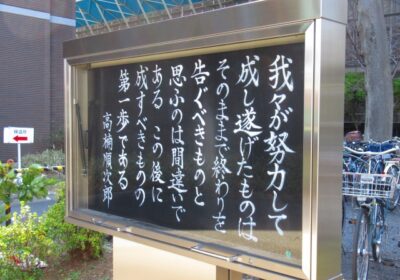 我々が努力して
成し遂げたものは
そのままで終わりを
告ぐべきものと
思ふのは間違いで
ある この後に
成すべきものの
第一歩である
高楠順次郎